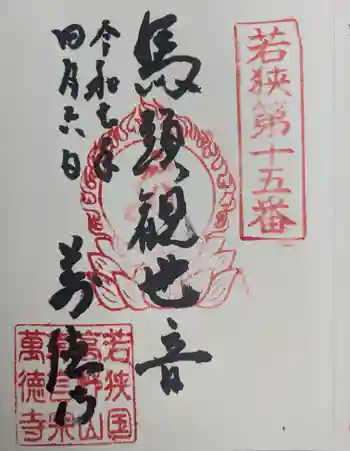 若狭第十五番
馬頭観世音
令和七年
四月六日
萬徳寺
若狭国
萬徳寺